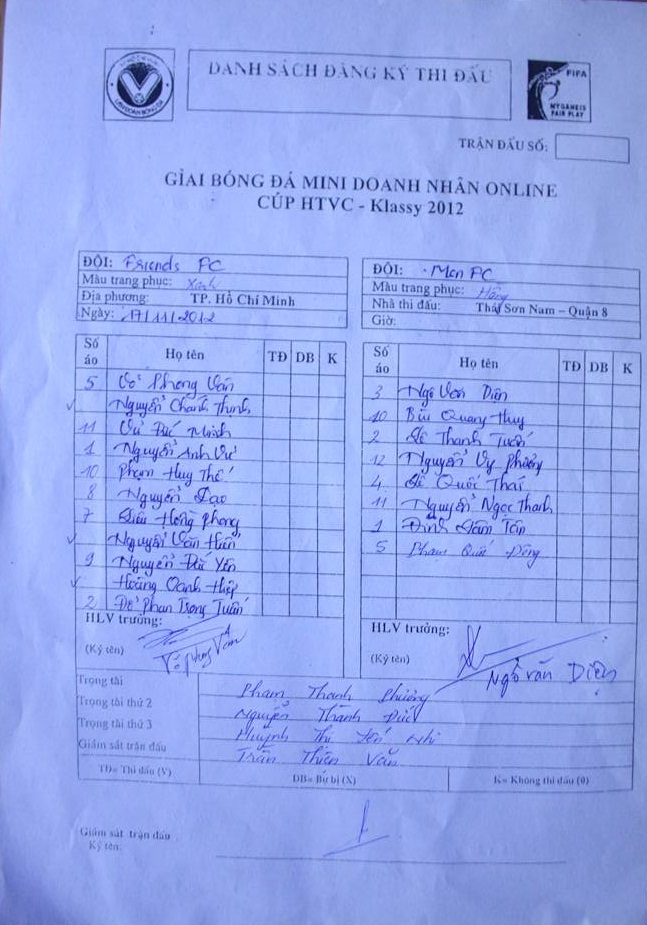 DANH SÁCH ĐĂNG KÝ THI ĐẤU
LIÊN ĐOÀN BÓNG ĐÁ
FIFA
MY GAME IS
FAIR PLAY
TRẬN ĐẤU SỐ:
GIẢI BÓNG ĐÁ MINI DOANH NHÂN ONLINE
CÚP HTVC - Klassy 2012
ĐỘI: Friends FC
Màu trang phục: Xanh
Địa phương: TP. Hồ Chí Minh
Ngày: 17/11/2012
Số áo Họ tên TĐ DB K
5 Võ Phong Vân
Nguyễn Chánh Thịnh
11 Vũ Đức Minh
1 Nguyễn Anh Vũ
10 Phạm Huy Thế
8 Nguyễn Đạo
7 Hồng Phong
Nguyễn Văn Hiến
9 Nguyễn Yên
Hoàng Oanh Hiệp
2 Đỗ Phan Trọng Tuấn
HLV trưởng:
(Ký tên)
ĐỘI: Men FC
Màu trang phục: Hồng
Nhà thi đấu: Thái Sơn Nam – Quận 8
Giờ:
Số áo Họ tên TĐ DB K
3 Ngô Văn Diện
10 Bùi Quang Huy
2 Lê Thanh Tuấn
12 Nguyễn Vy Phương
4 Lê Quốc Thái
11 Nguyễn Ngọc Thanh
1 Đinh Tân
5 Phạm Quốc
HLV trưởng:
(Ký tên)
Ngô Văn Diện
Trọng tài Phạm Thanh Phương
Trọng tài thứ 2 Nguyễn Thành Đức
Trọng tài thứ 3 Huỳnh Thị Yến Nhi
Giám sát trận đấu Trần Thiên Vân
TĐ= Thi đấu (V) DB= Dự bị (X) K= Không thi đấu (0)
Giám sát trận đấu
Ký tên: